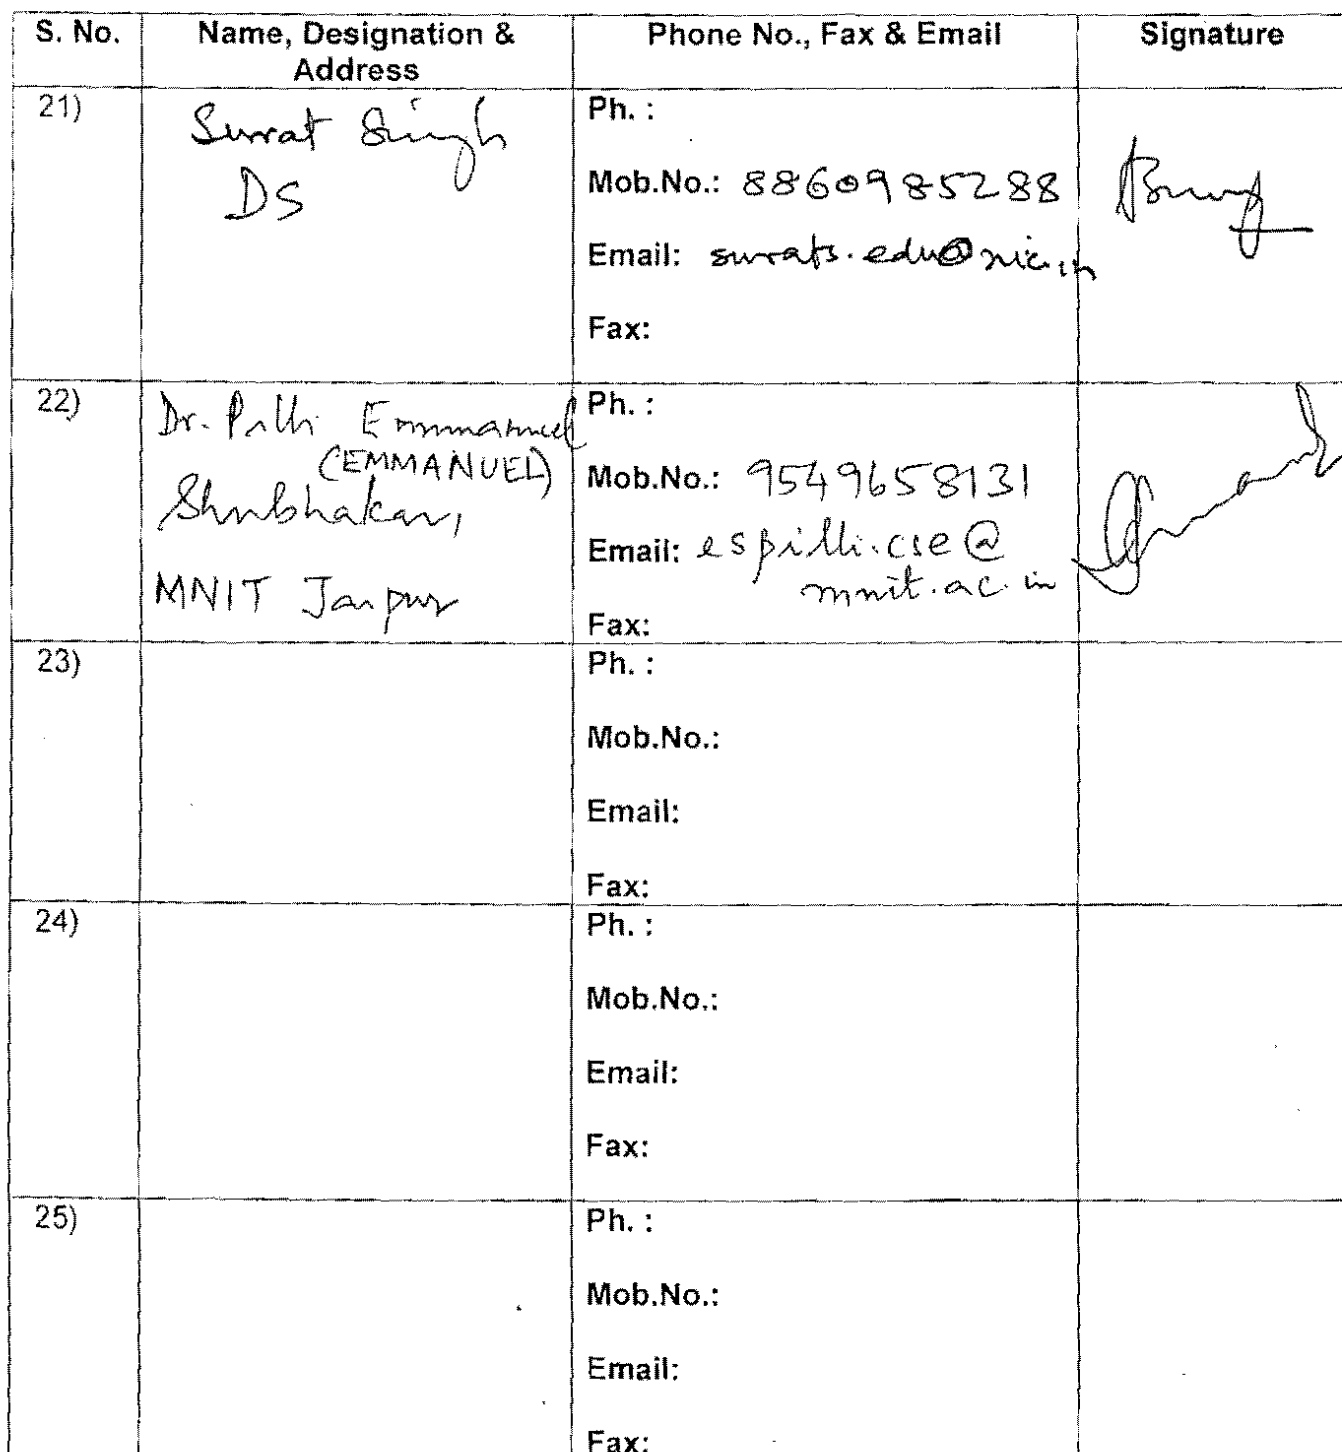 S. No. Name, Designation & Address Phone No., Fax & Email Signature
21) Surat Singh Ph. :
DS Mob.No.: 8860985288
Email: surats.edu@nic.in
Fax:
22) Dr. Pilli Emmmanuel Ph. :
(EMMANUEL) Mob.No.: 9549658131
Shubhakar, Email: espilli.cse@
MNIT Jaipur mnit.ac.in
Fax:
23) Ph. :
Mob.No.:
Email:
Fax:
24) Ph. :
Mob.No.:
Email:
Fax:
25) Ph. :
Mob.No.:
Email:
Fax: